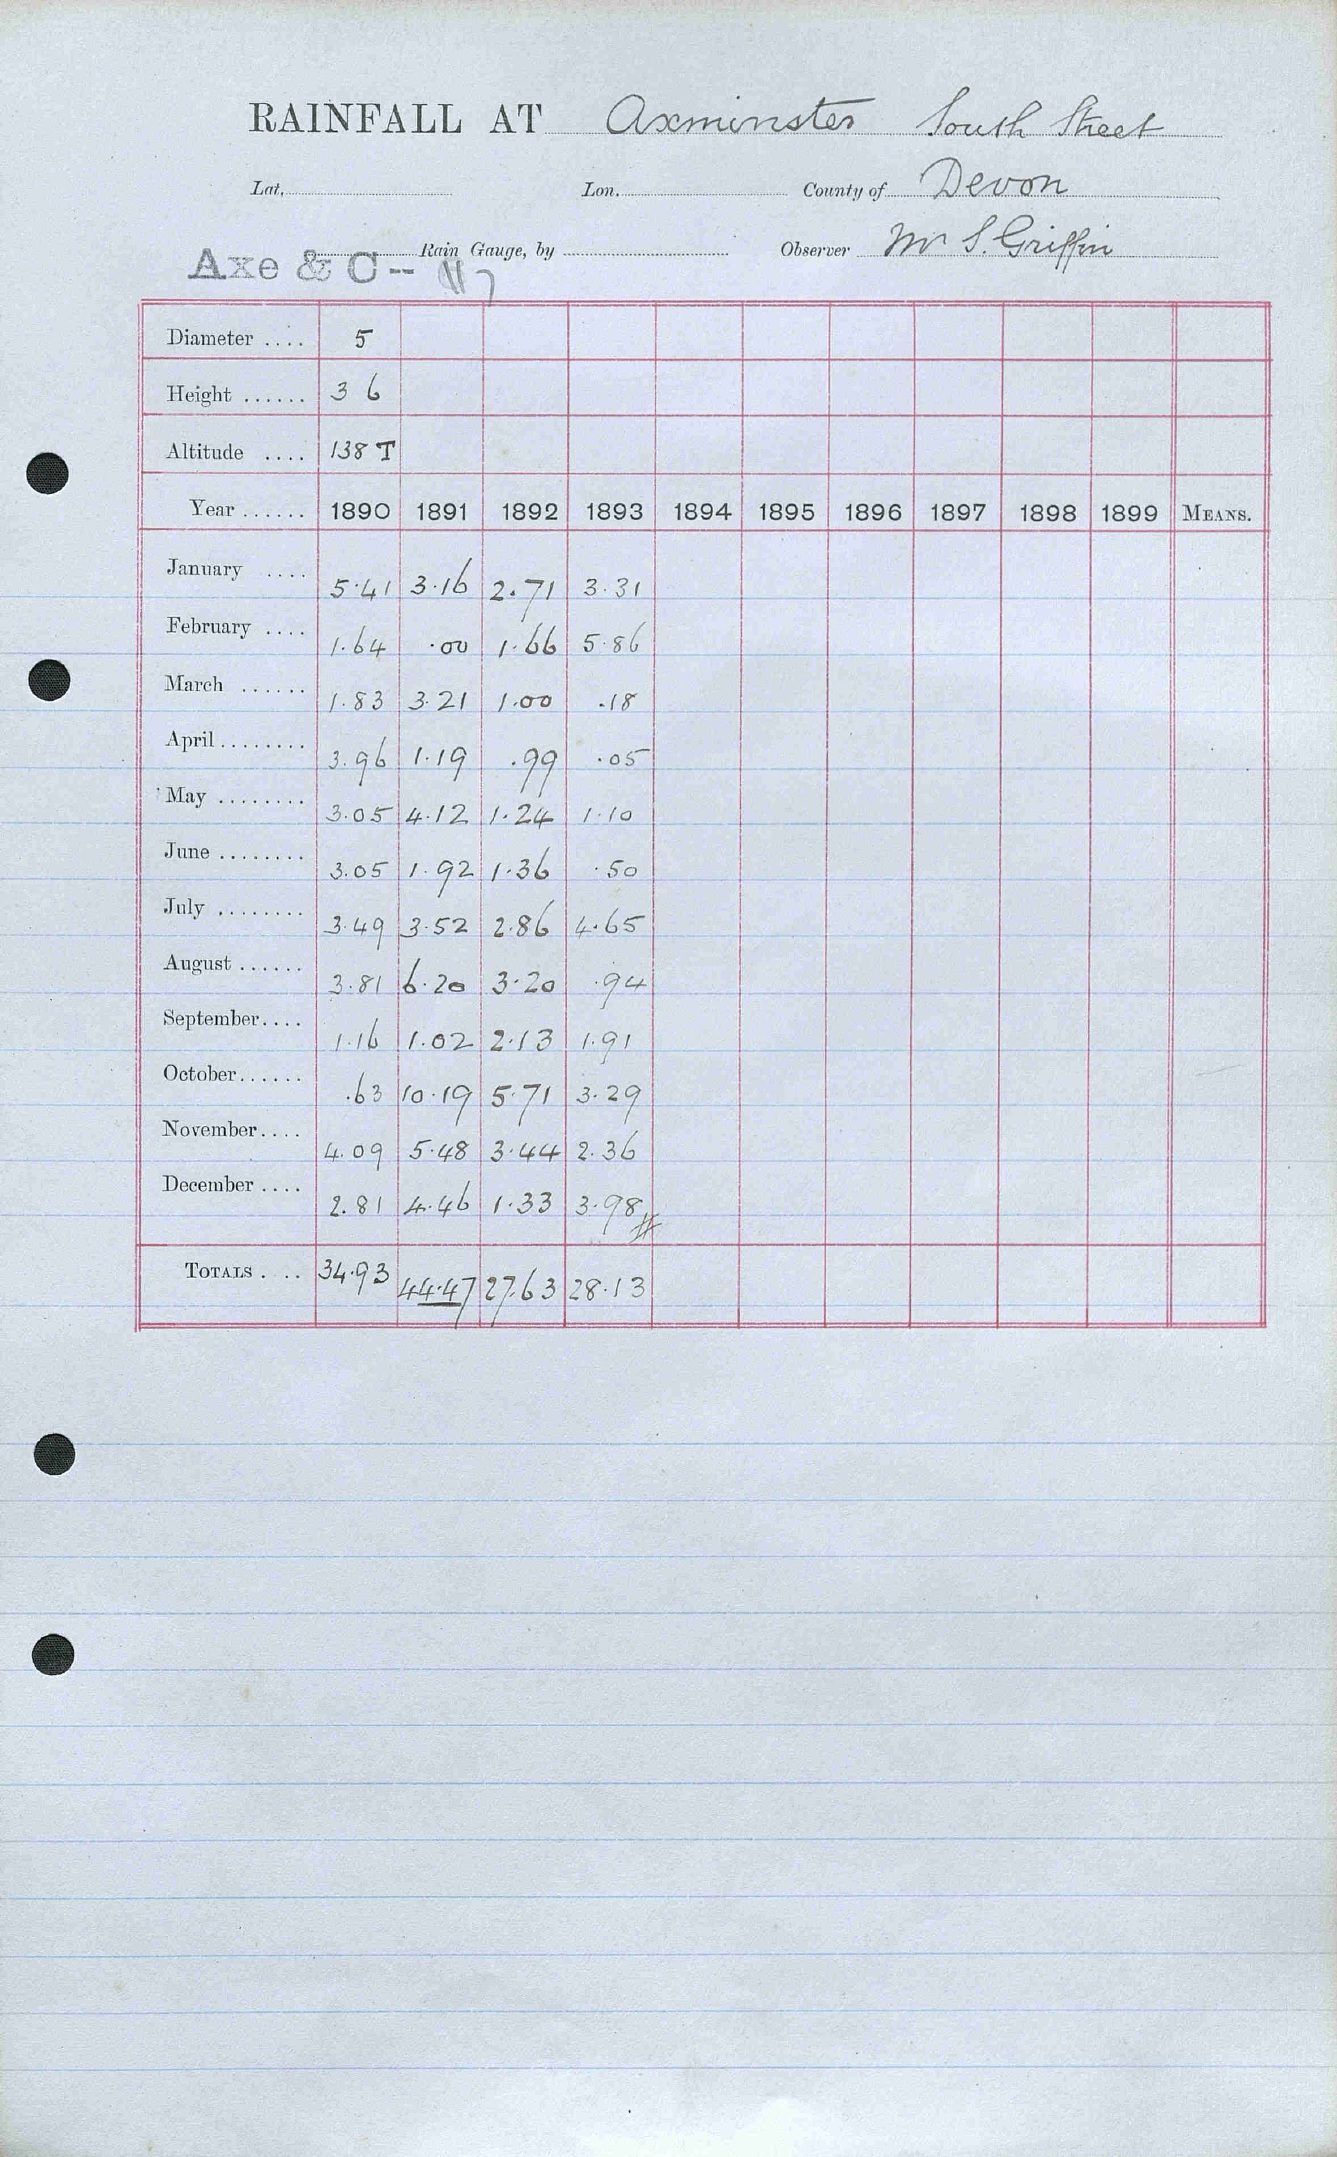 RAINFALL AT Axminster South Street
Lat. Lon. County of Devon
Axe & C-- Rain Gauge, by Observer Mr S. Griffin
Diameter .... 5
Height ...... 3 6
Altitude .... 138 T
Year ...... 1890 1891 1892 1893 1894 1895 1896 1897 1898 1899 MEANS.
January .... 5.41 3.16 2.71 3.31
February .... 1.64 .00 1.66 5.86
March ...... 1.83 3.21 1.00 .18
April ........ 3.96 1.19 .99 .05
May ........ 3.05 4.12 1.24 1.10
June ........ 3.05 1.92 1.36 .50
July ........ 3.49 3.52 2.86 4.65
August ...... 3.81 6.20 3.20 .94
September.... 1.16 1.02 2.13 1.91
October...... .63 10.19 5.71 3.29
November.... 4.09 5.48 3.44 2.36
December .... 2.81 4.46 1.33 3.98
TOTALS . .. 34.93 44.47 27.63 28.13